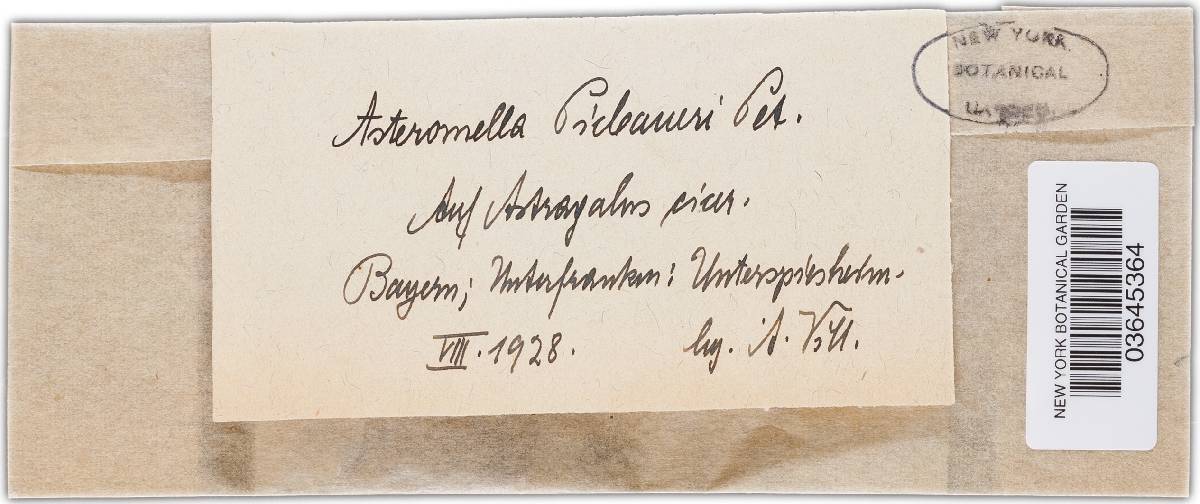 Asteromella Picbaueri Pet.
Auf Astragalus cicer.
Bayern; Unterfranken: Unterspiesheim.
VIII. 1928. leg. A. Vill.
NEW YORK
BOTANICAL
GARDEN
NEW YORK BOTANICAL GARDEN
03645364